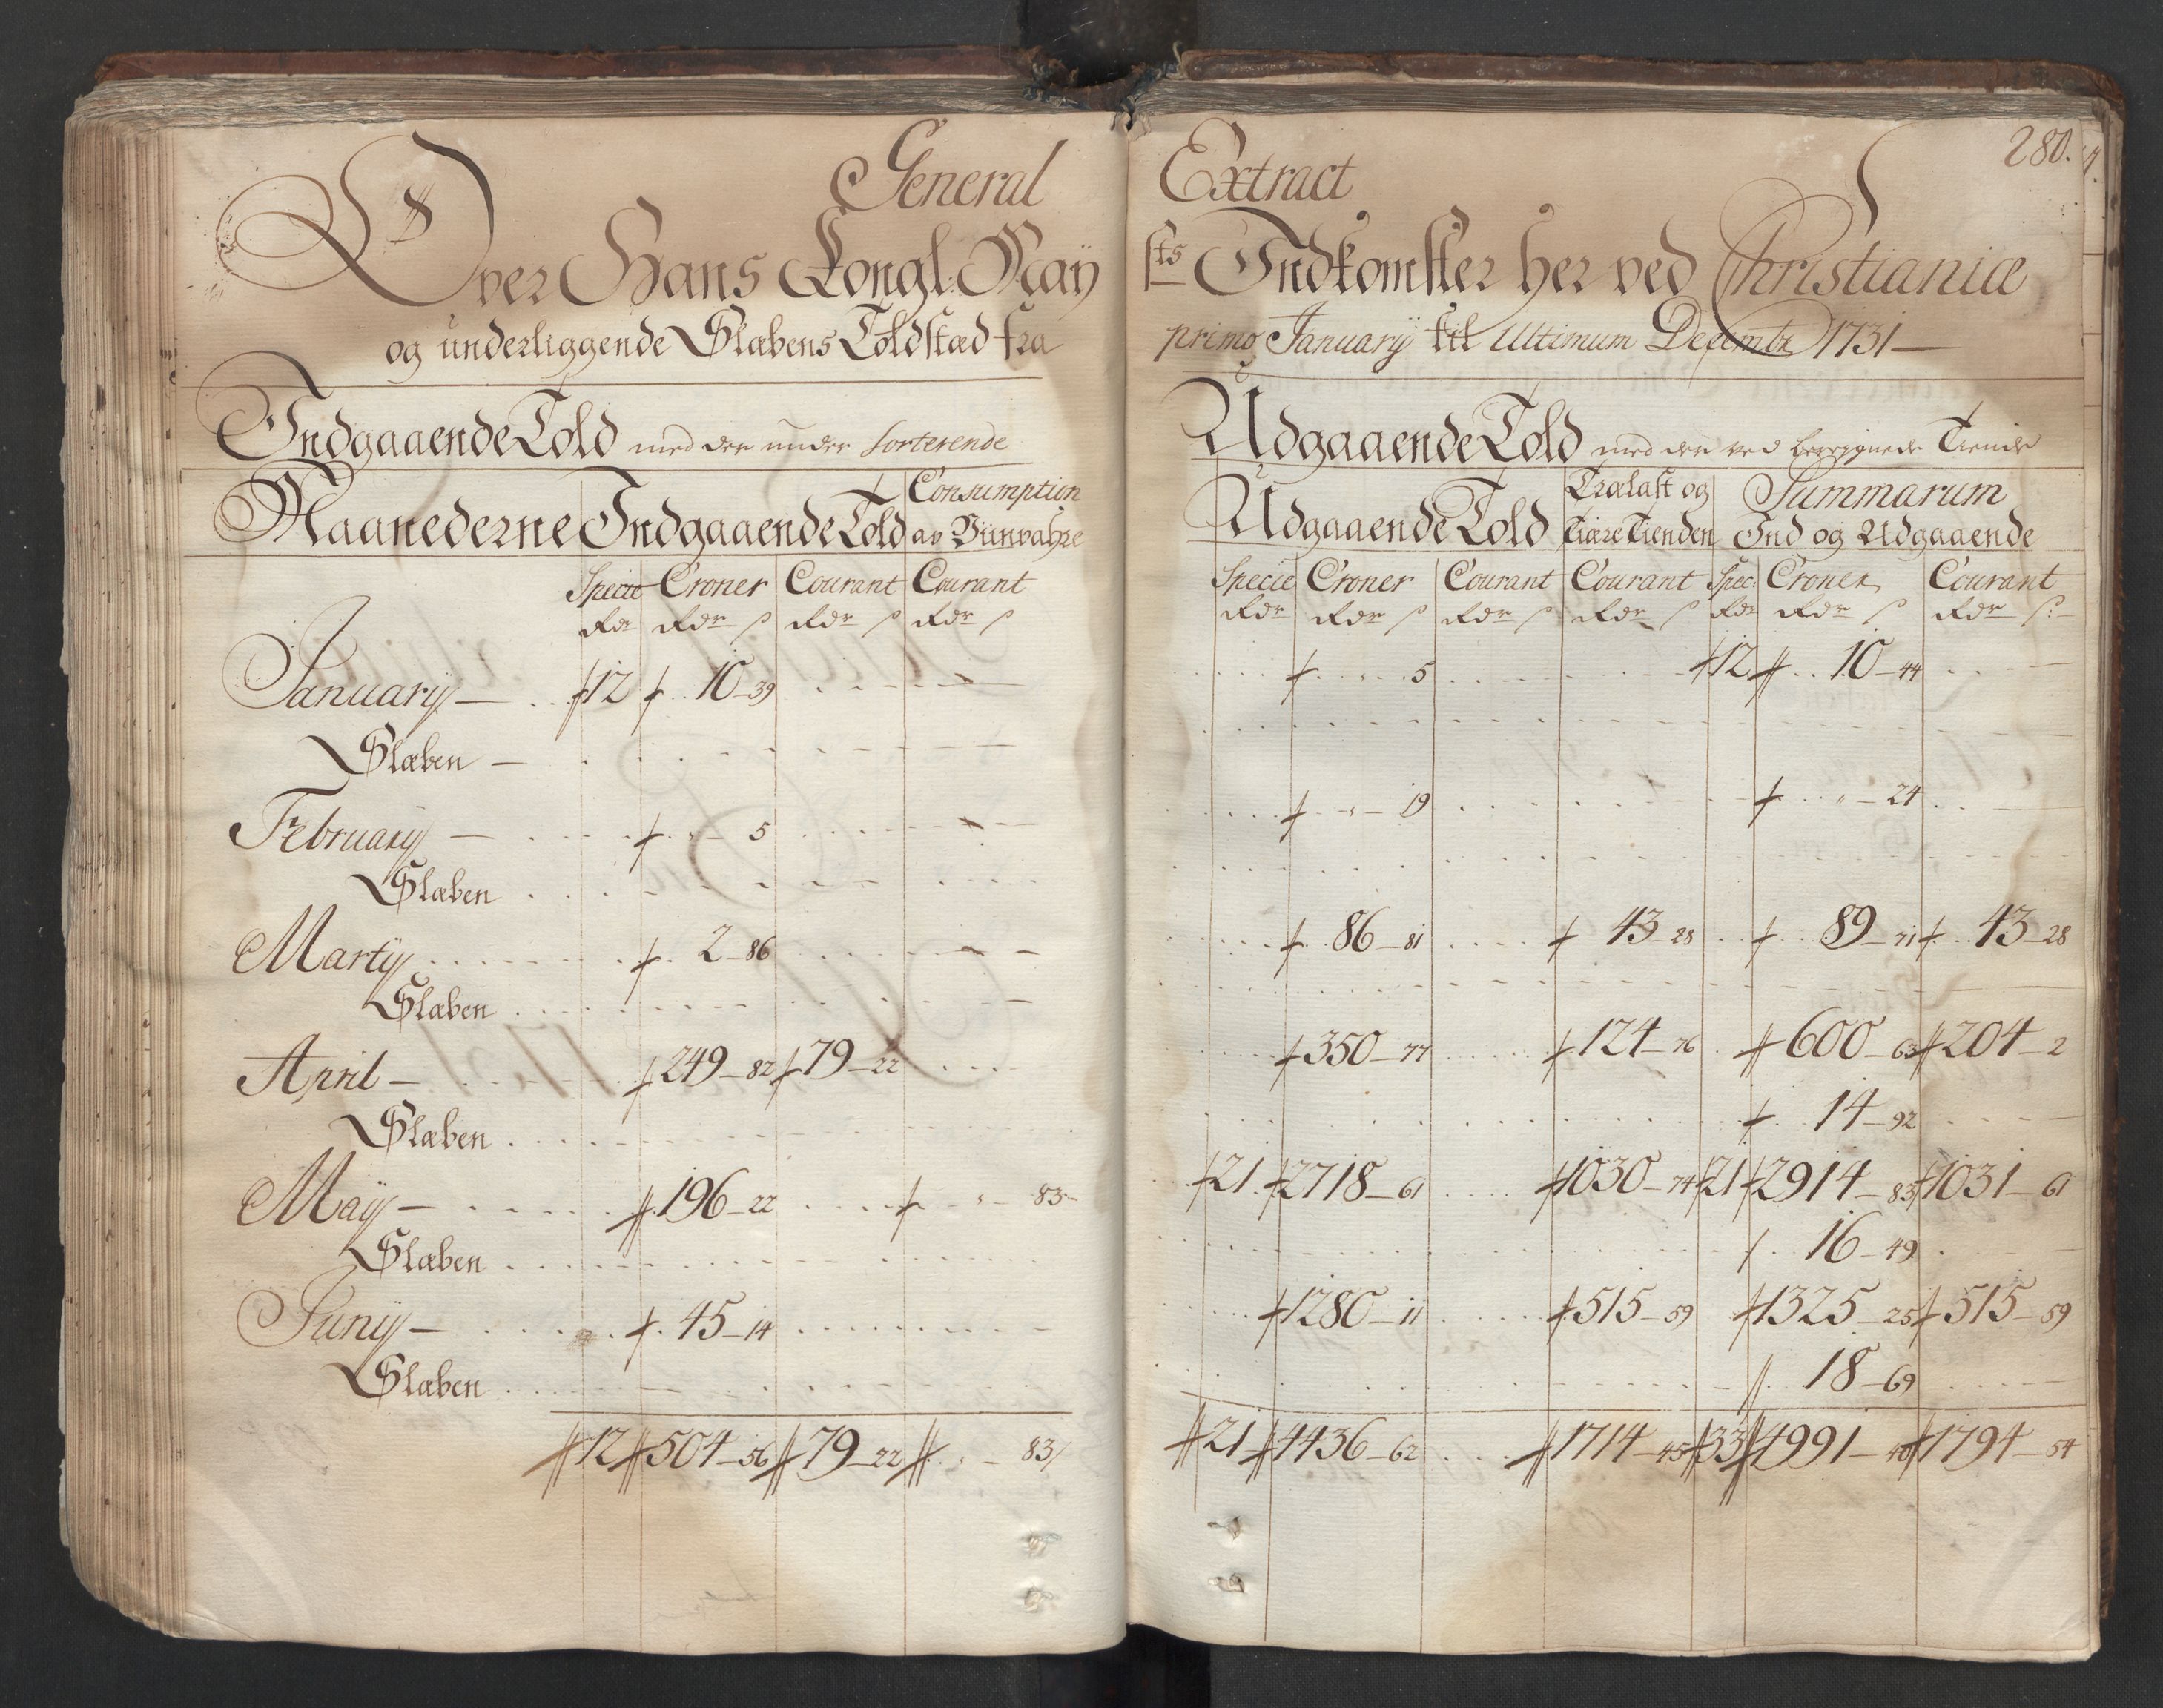 280.
General Extract
Over Hans Kongl: May sts Indkomster her ved Christianiæ
og underliggende Slæbens Toldstæd fra primo Januarÿ til Ultimum Decembr 1731
Indgaaende Told med den under Sorterende
Maanederne Indgaaende Told Consumption av Viinvahre
Specie Croner Courant Courant
Rdr Rdr s Rdr s Rdr s
Januarÿ 12 10 39
Slæben
Februarÿ 5
Slæben
Martÿ 2 86
Slæben
April 249 82 79 22
Slæben
Maÿ 196 22 83
Slæben
Junÿ 45 14
Slæben
12 504 56 79 22 83
Udgaaende Told med den ved Tiende
Udgaaende Told Trælast og Tiære Tienden Summarum Ind og Udgaaende
Specie Croner Courant Courant Spec: Croner Courant
Rdr Rdr s Rdr s Rdr s Rdr Rdr s Rdr s:
5 12 10 44
19 24
86 81 43 28 89 71 43 28
350 77 124 76 600 63 204 2
14 92
21 2718 61 1030 74 21 2914 83 1031 61
16 49
1280 11 515 59 1325 25 515 59
18 69
21 4436 62 1714 45 33 4991 40 1794 54